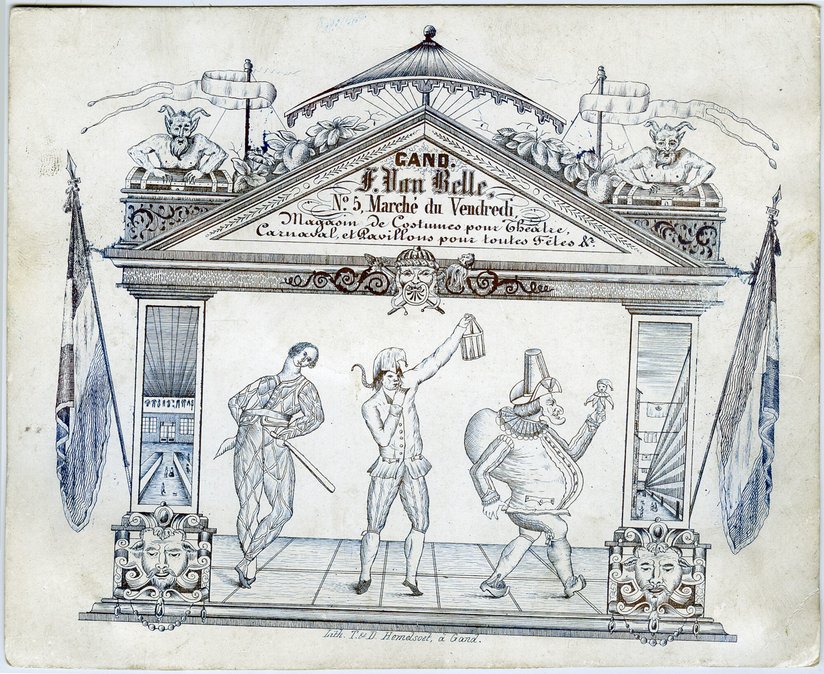 GAND.
F. Van Belle,
No 5, Marché du Vendredi
Magasin de Costumes pour Théâtre,
Carnaval, et Pavillons pour toutes Fêtes &c
Lith. T. & D. Hemelsoet, à Gand.